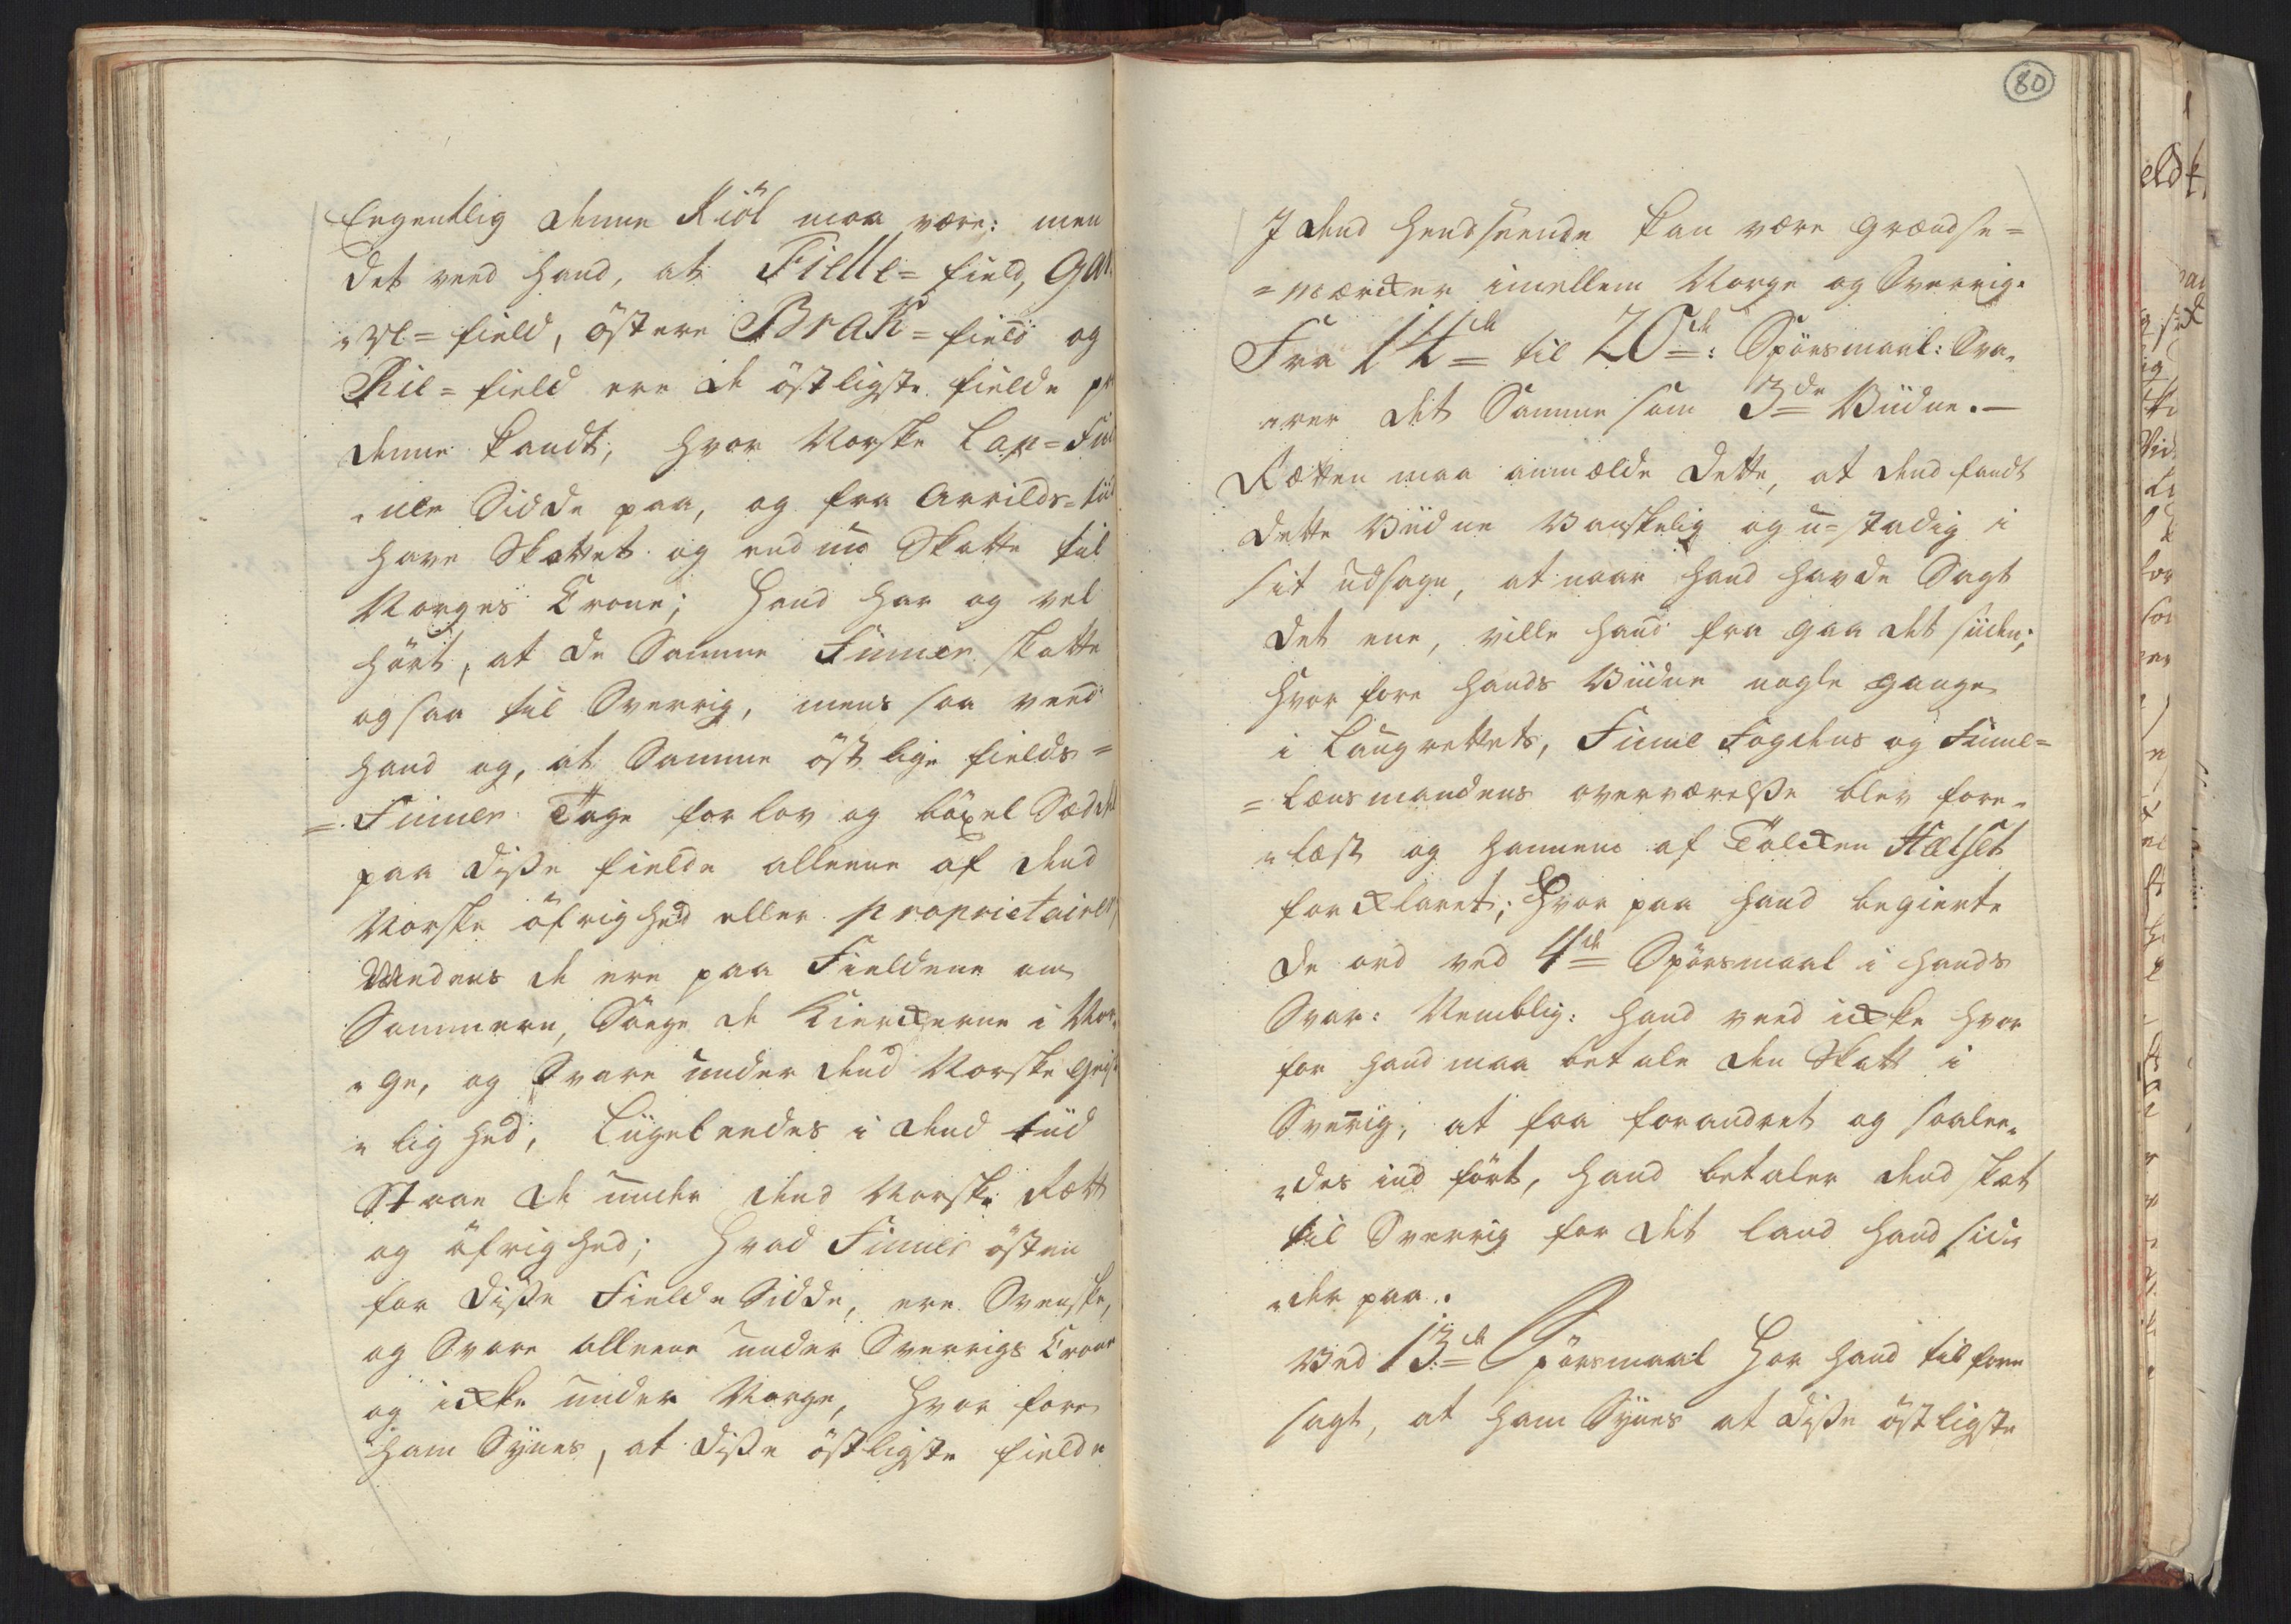 Eegentlig denne Kiöl maa være: men
det veed hand, at Fielle= field, Gar
"Vl= field, östere Brak= field og
Kil= field ere de östligste fielde p
denne kandt; hvor Norske Lap= Fin
"ner Sidde paa, og fra Arrilds= tiid
have Skattet og end nu Skatte til
Norges Crone; Hand har og vel
hört, at de Samme Finner skatte
og saa til Sverrig, mens saa veed
hand og, at Samme östlige fields=
=Finner Tage forlov og böxel Sæddel
paa disse fielde alleene af dend
Norske öfrighed eller proprietairer
Medens de ere paa Fieldene om
Sommern, Söege de Kierckerne i Nor
"ge, og Svare under dend Norske geist
"lighed; Liigeleedes i dend tiid
Staae de under dend Norske Rætt
og öfrighed; Hvad Finner östen
for disse Fielde Sidde, ere Svenske,
og Svare alleene under Sverrigs Crone
og icke under Norge, hvor fore
ham Synes, at disse östligste fielde
80
I dend hendseende kan være grændse=
=mærcker imellem Norge og Sverrig.
Fra 14de til 20de: Spörsmaal: Sva"
"rer det Samme som 3de Viidne.—
Rætten maa anmælde dette, at dend fandt
dette Viidne Vanskelig og u=stadig i
sit udsagn, at naar hand havde Sagt
det ene, ville hand fra gaa det siiden;
hvor fore hands Viidne nogle gange
i Laugrettets, Finne Fogdens og Finne=
=Lænsmandens overværelsse blev fore"
"læst og hannem af Tolcken Hælset
forcklaret; Hvor paa hand begierte
de ord ved 4de Spörsmaal i hands
Svar: Nemblig: hand veed icke hvor
for hand maa betale den Skatt i
Sverig; at faa forandret og saalee"
"des ind fört, hand betaler dend skat
til Sverrig for det land hand sid
"der paa.
Ved 13de Spörsmaal Har hand tilforn
sagt, at ham Synes at disse östligste